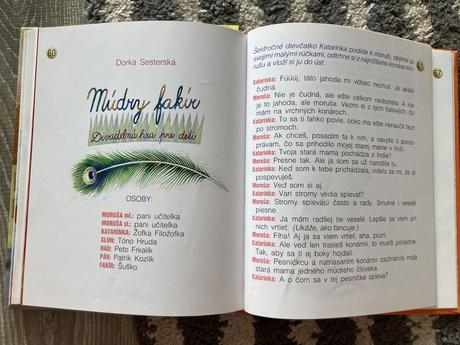 60
Dorka Sesterská
Múdry fakír
Divadelná hra pre deti
OSOBY:
MORUŠA ml.: pani učiteľka
MORUŠA st.: pani učiteľka
KATARÍNKA: Žofka Filozofka
SLON: Tóno Hruda
HAD: Peťo Frkalík
PÁV: Patrik Kozlík
FAKÍR: Šuško
Šesťročné dievčatko Katarínka podíde k moruši, objíme ju
svojimi malými rúčkami, odtrhne si z najnižšieho konára mo-
rušu a vloží si ju do úst.
Katarínka: Fúúúj, táto jahoda mi vôbec nechutí. Je akási
čudná.
Moruša: Nie je čudná, ale ešte celkom nedozretá. A nie
je to jahoda, ale moruša. Vezmi si z tých ľaľových, čo
mám na vrchných konároch.
Katarínka: To sa ti ľahko povie, ocko ma ešte nenaučil liezť
po stromoch.
Moruša: Ak chceš, posadím ťa k nim, a navyše ti poroz-
právam, čo sa prihodilo mojej starej mame v Indii.
Katarínka: Tvoja stará mama pochádza z Indie?
Moruša: Presne tak. Ale ja som sa už narodila tu.
Katarínka: Keď som k tebe prichádzala, videlo sa mi, že si
pospevuješ.
Moruša: Veď som si aj.
Katarínka: Vari stromy vedia spievať?
Moruša: Stromy spievajú často a rady. Smutné i veselé
piesne.
Katarínka: Ja mám radšej tie veselé. Lepšie sa viem pri
nich vrtieť. (Ukáže, ako tancuje.)
Moruša: Fíha! Aj ja sa viem vrtieť, aha, pozri.
Katarínka: Ale veď len trasieš konármi, to musíš poriadne.
Tak, aby sa ti aj boky hojdali.
Moruša: Pesničkou a natriasaním konárov zachránila moja
stará mama jedného múdreho človeka.
Katarínka: A o čom sa v tej pesničke spieva?
61